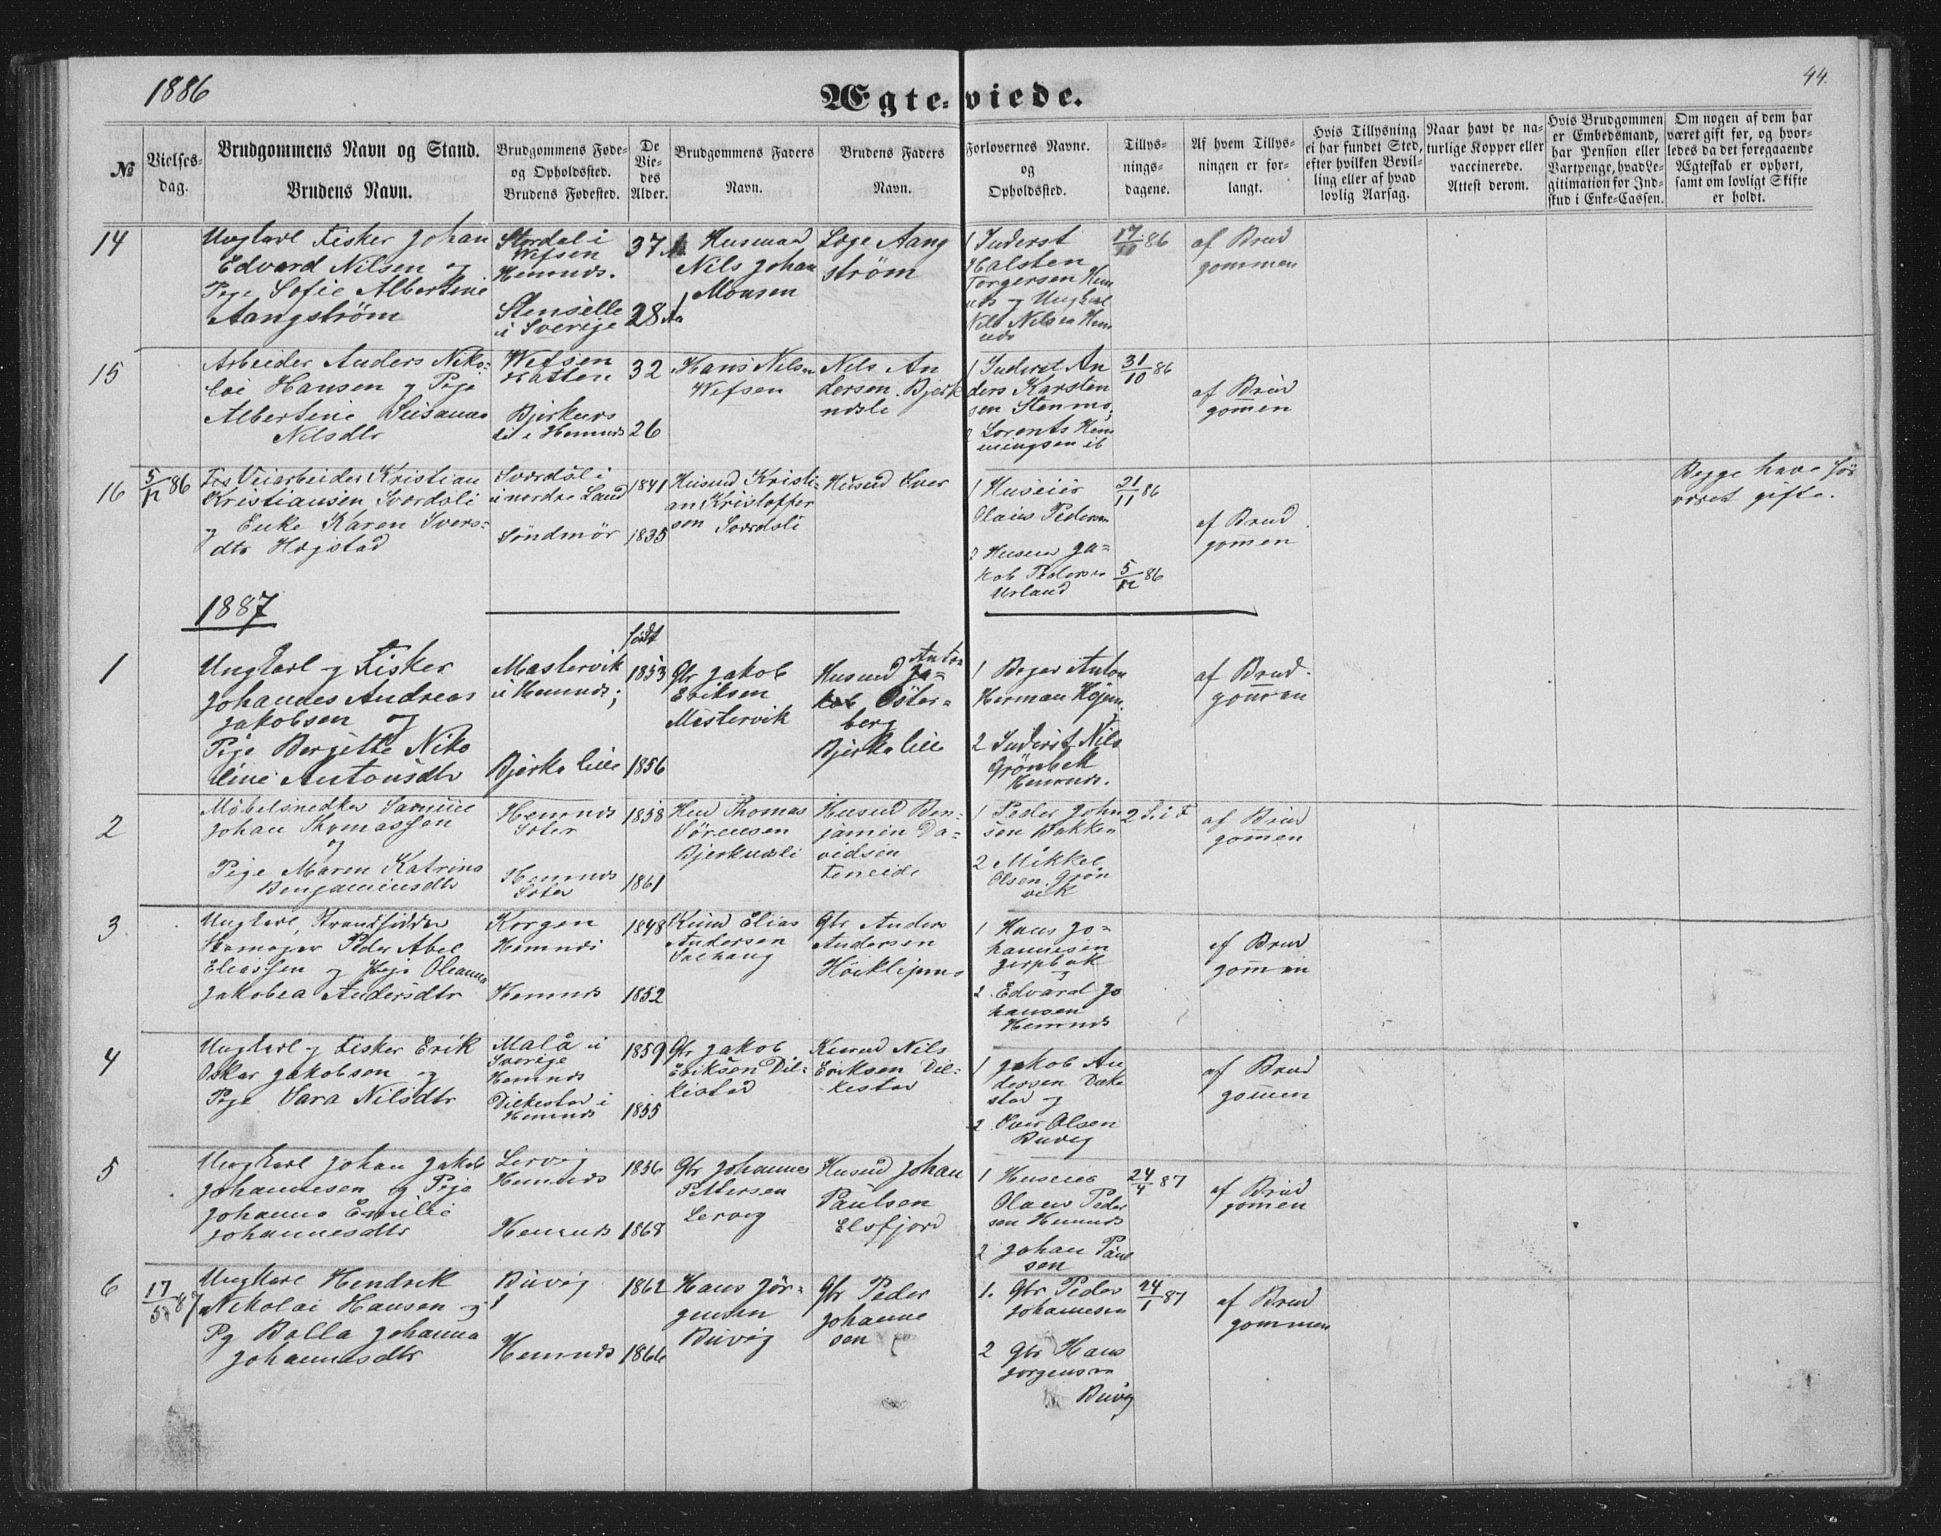 1886
Ægteviede.
44.
№
Vielses-
dag.
Brudgommens Navn og Stand.
Brudens Navn.
Brudgommens Føde-
og Opholdssted.
Brudens Fødested.
De
Vie-
des
Alder.
Brudgommens Faders
Navn.
Brudens Faders
Navn.
Forlovernes Navne.
og
Opholdssted.
Tillys-
nings-
dagene.
Af hvem Tillys-
ningen er for-
langt.
Hvis Tillysning
ei har fundet Sted,
efter hvilken Bevil-
ling eller af hvad
lovlig Aarsag.
Naar havt de na-
turlige Kopper eller
vaccinerede.
Attest derom.
Hvis Brudgommen
er Embedsmand,
har Pension eller
Vartpenge, hvad Le-
gitimation for Ind-
skud i Enke-Cassen.
Om nogen af dem har
været gift før, og hvor-
ledes da det foregaaende
Ægteskab er ophørt,
samt om lovligt Skifte
er holdt.
14
Ungkarl Fisker Johan
Edvard Nilsen og
Pige Sofie Albertine
Aangstrøm
Stordal i
Wefsen
Hemnæs.
Stenselle
i Sverige
37
28 Aa
Husmand
Nils Johan
Monsen
Aang
strøm
1 Inderst
Halsten
Torgersen Hem
næs og Ungkarl
Nils Nilsen Hem
næs
17/10 86
af Brud
gommen
15
Arbeider Anders Niko-
lai Hansen og Pige
Albertine Susanna
Nilsdtr
Wefsen
Hatten
Bjerknes
li i Hemnæs
32
26
Hans Nilsen
Wefsen
Nils An
dersen Bjerk
næsli
1 Inderst An
ders Karsten
sen Stenmo,
2 Lorents Hen
ningsen ib
31/10 86
af Brud
gomen
16
5/12 86
Veiarbeider Kristian
Kristiansen Sværdsli
og Enke Karen Ivers-
dtr Hægstad
Sværdsli
i nordre Land
Søndmør
1841
1835
Husmd Kristi-
an Kristoffer
sen Sværdsli
Husmd Iver
1 Huseier
Olaus Pedersen
2 Huseier Ja-
kob Pedersen
Urland
21/11 86
5/12 86
af Brud
gomen
Begge have før
været gifte.
1887
født
1
Ungkarl og Fisker
Johannes Andreas
Jakobsen og
Pige Bergitte Niko
line Antonsdtr
Mastervik
i Hemnæs;
Bjerka lille
1853
1856
Gbr Jakob
Eriksen
Mastervik
Husmd Anton
Øster-
berg
Bjerka lille
1 Anton
Herman
2 Inderst Nils
Grønbek
Hemnæs.
af Brud-
gomen
2
Møbelsnedker Samuel
Johan Thomassen
og
Pige Maren Katrina
Benjaminsdtr
Hemnes
Hemnes
1858
1861
Thomas
Sørensen
Bjerknæsli
Husmd Ben-
jamin Da-
vidsen
1 Peder John
sen Bakken
2 Mikkel
Olsen Grøn
vik
af Brud
gomen
3
Ungkarl, Strandsidder
Skomager Peder Abel
Eliassen og Pige Oleanna
Jakobea Andersdtr
Korgen
Hemnæs
Hemnæs
1848
1852
Elias
Andersen
Gbr Anders
Andersen
1 Hans Jo-
hannesen
og
2 Edvard Jo
hansen
Hemnæs
af Brud
gommen
4
Ungkarl og Fisker Erik
Oskar Jakobsen og
Pige Sara Nilsdtr
Malå i
Sverige
Hemnæs
Dilkestad i
Hemnæs
1859
1855
Gbr Jakob
Eriksen Dil-
kestad
Nils
Eriksen Dil-
kestad
1 Jakob An
dersen
stad og
2 Iver Olsen
Buvig
af Brud
gomen
5
Ungkarl Johan Jakob
Johannesen og Pige
Johanna Emilie
Johannesdtr
Lervig
Hemnæs
Hemnæs
1856
1868
Gbr Johannes
Pettersen
Lervig
Husmd Johan
Paulsen
Elsfjord
1 Huseier
Olaus Peder
sen Hemnæs
2 Johan Paul
sen
24/4 87
af Brud
gomen
6
17/5 87
Ungkarl Hendrik
Nikolai Hansen og
Pg Balla Johanna
Johannesdtr
Buvig
Hemnæs
1862
1866
Hans Jør-
gensen
Buvig
Gbr Peder
Johanne
sen
1. Gbr Peder
Johannesen
2 Gbr Hans
Jørgensen
Buvig
24/1 87
af Brud
gommen